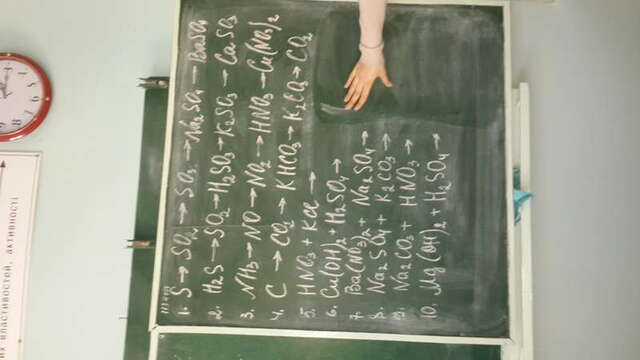 1. S → SO₂ → SO₃ → Na₂SO₄ → BaSO₄
2. H₂S → SO₂ → H₂SO₃ → K₂SO₃ → CaSO₃
3. NH₃ → NO → NO₂ → HNO₃ → Cu(NO₃)₂
4. C → CO₂ → KHCO₃ → K₂CO₃ → CO₂
5. HNO₃ + KCl →
6. Cu(OH)₂ + H₂SO₄ →
7. Ba(NO₃)₂ + Na₂SO₄ →
8. Na₂SO₄ + K₂CO₃ →
9. Na₂CO₃ + HNO₃ →
10. Mg(OH)₂ + H₂SO₄ →
властивостей, активності